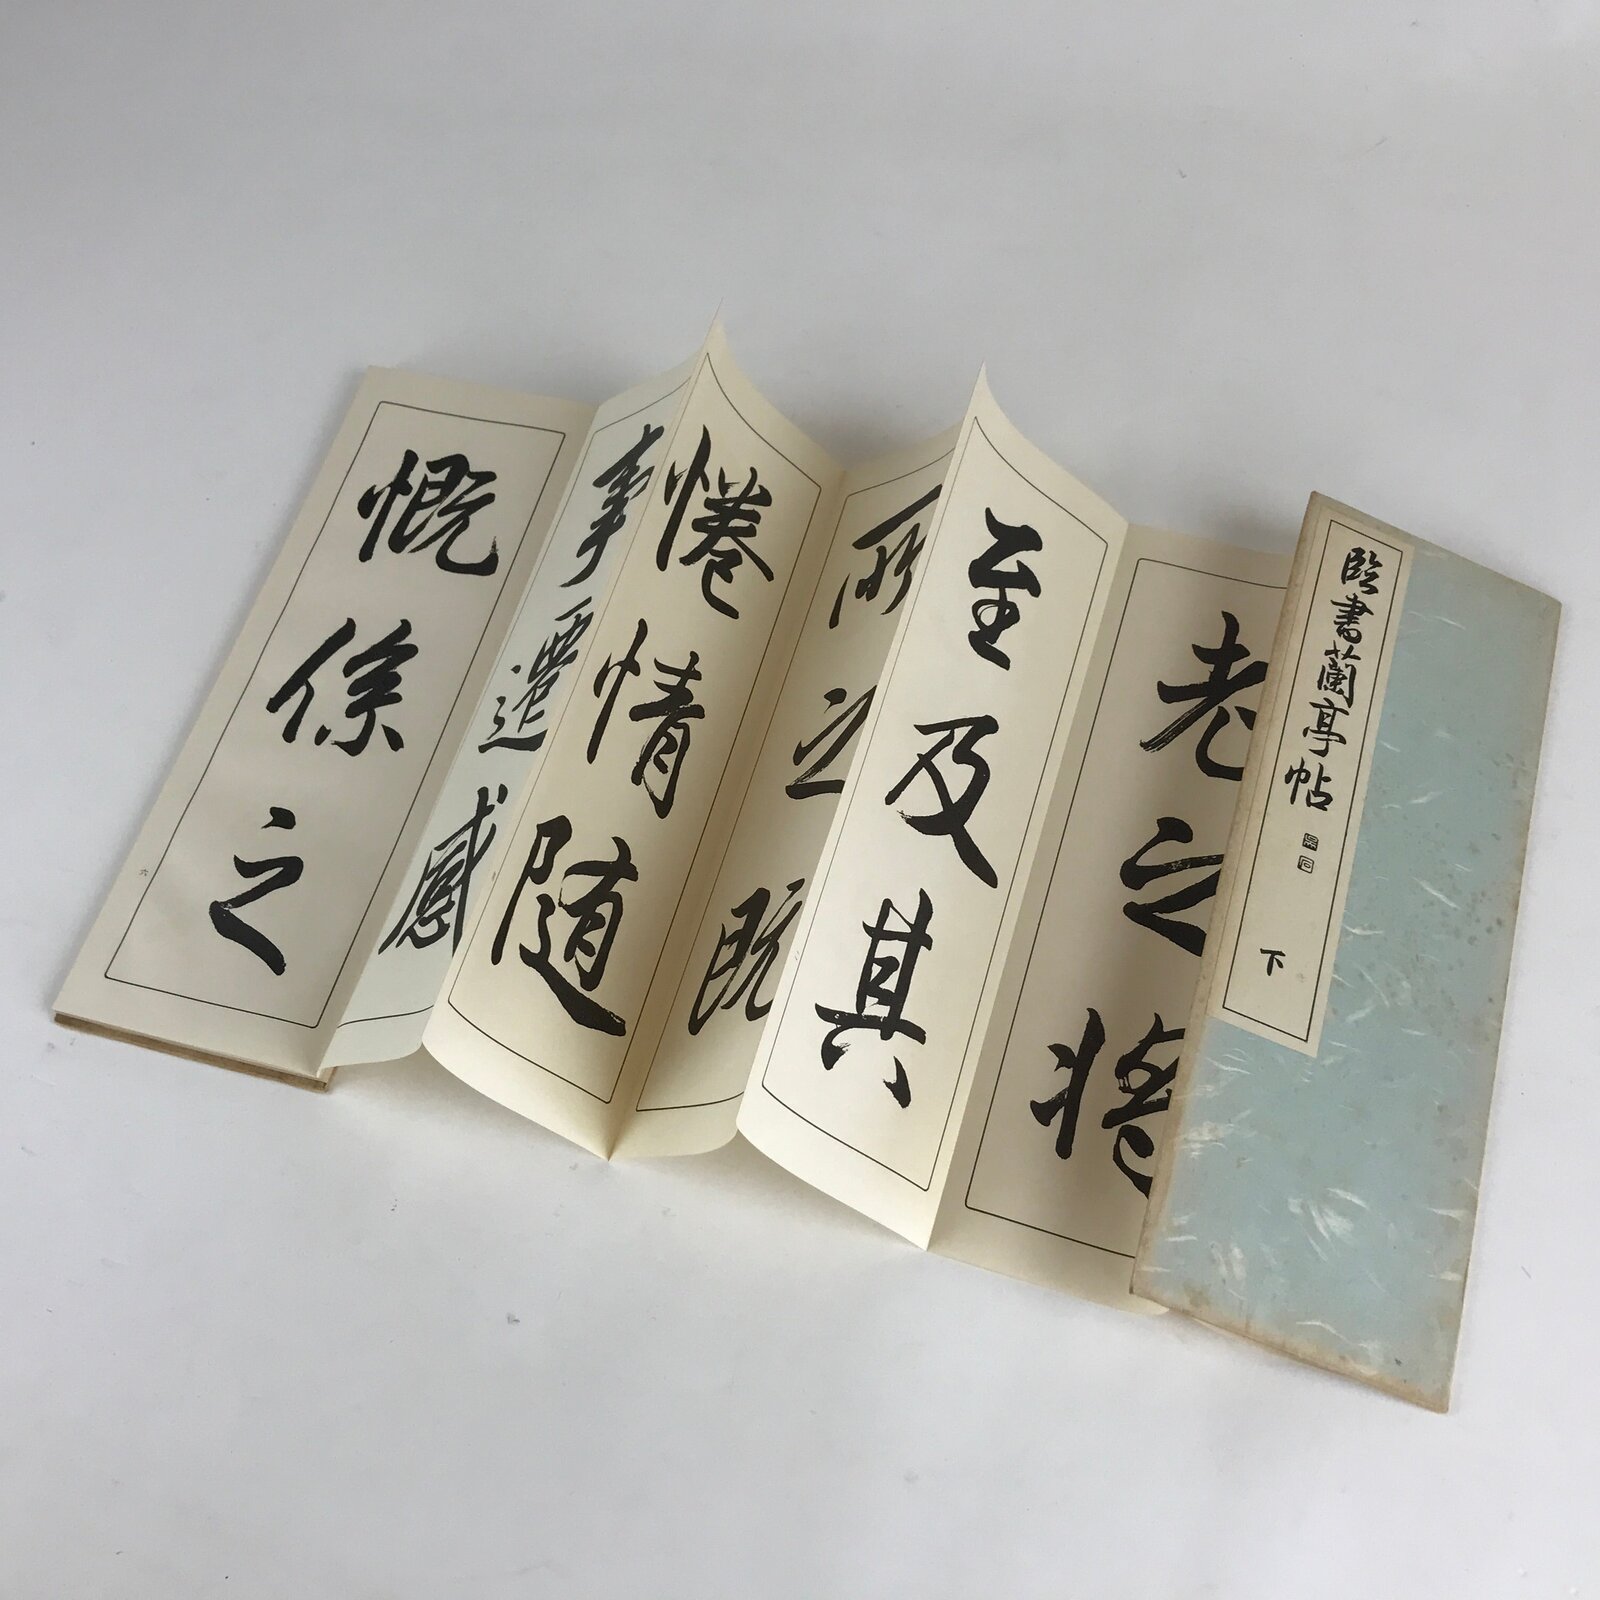 臨書蘭亭帖
下
老之将
至及其
所之既
惓情随
事遷感
慨係之
六